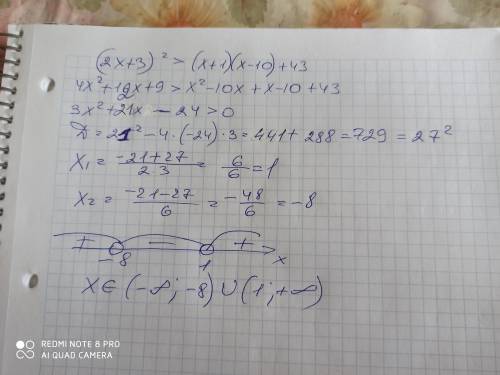 (2x+3)² > (x+1)(x-10)+43
4x²+12x+9 > x²-10x+x-10+43
3x²+21x-24>0
D=21²-4·(-24)·3=441+288=729=27²
X₁=(-21+27)/(2·3)=6/6=1
X₂=(-21-27)/6=-48/6=-8
+ - +
-8 1 x
X∈(-∞;-8)∪(1;+∞)
REDMI NOTE 8 PRO
AI QUAD CAMERA